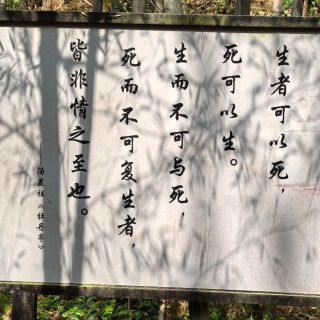 生者可以死，
死可以生。
生而不可与死，
死而不可复生者，
皆非情之至也。
——汤显祖《牡丹亭》